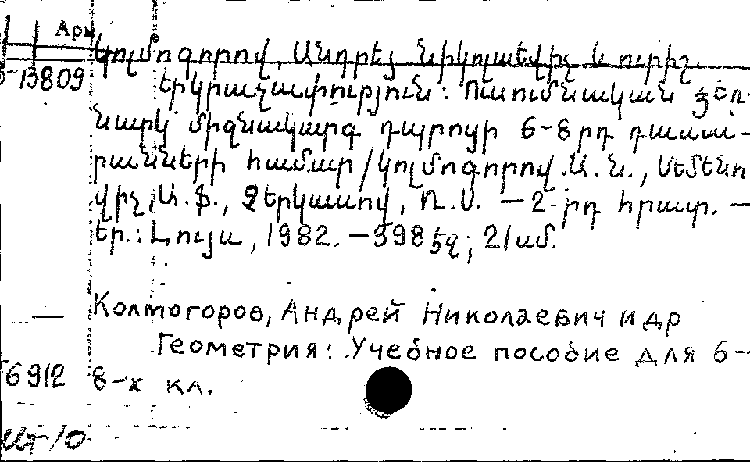 Арм
Կոլմոգորով, Անդրեյ Նիկոլաևիչ և ուրիշ.
-13809 Երկրաչափություն: Ուսումնական ձեռ-
նարկ միջնակարգ դպրոցի 6-8րդ դասա-
րանների համար/Կոլմոգորով.Ա.Ն., Սեմենո
վիչ,Ա.Ֆ., Չերկասով, Ռ.Ս. — 2-րդ հրատ. —
Եր.: Լույս, 1982. — 398 էջ; 21սմ.
— Колмогоров, Андрей Николаевич и др
Геометрия: Учебное пособие для 6-
6912 8-х кл.
/0